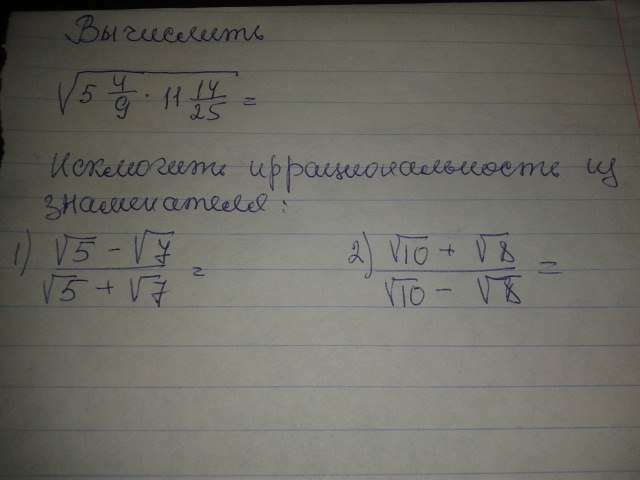 Вычислить
√(5 4/9 · 11 14/25) =
Исключить иррациональность из
знаменателя:
1) (√5 - √7)/(√5 + √7) =
2) (√10 + √8)/(√10 - √8) =